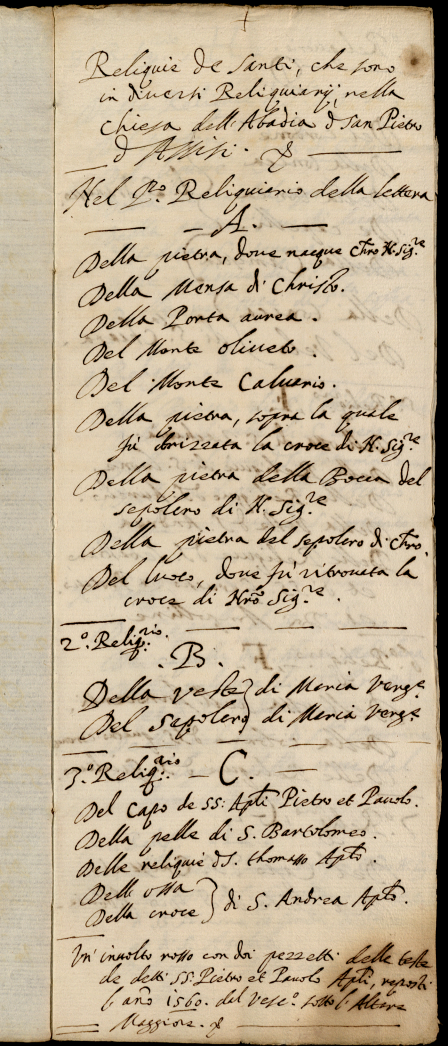 Reliquie de Santi, che sono
in diversi Reliquiarij, nella
Chiesa dell'Abadia d San Pietro
d'Assisi.
Nel P.º Reliquiario della lettera
A.
Della pietra, doue nacque Chro N. Sig.re
Della Mensa di Christo.
Della Porta aurea.
Del Monte oliueto.
Del Monte Caluario.
Della pietra, sopra la quale
fù drizzata la croce di N. Sig.re
Della pietra della Bocca del
sepolcro di N. Sig.re
Della pietra del sepolcro di Chro.
Del luoco, doue fù ritrouata la
croce di Nrõ Sig.re.
2.º Reliq.rio.
.B.
Della veste } di Maria Verg.e
Del sepolcro } di Maria Verg.e
3.º Reliq.rio C.
Del Capo de SS: Apli Pietro et Pauolo.
Della pelle di S. Bartolomeo.
Delle reliquie d S. thomasso Aplo.
Dell'ossa
Della croce } di S. Andrea Aplo.
Un inuolto rosso con doi pezzetti delle teste
de detti SS. Pietro et Pauolo Apli, reposti
l'año 1560. dal Vesc.º sotto l'Altare
Maggiore.